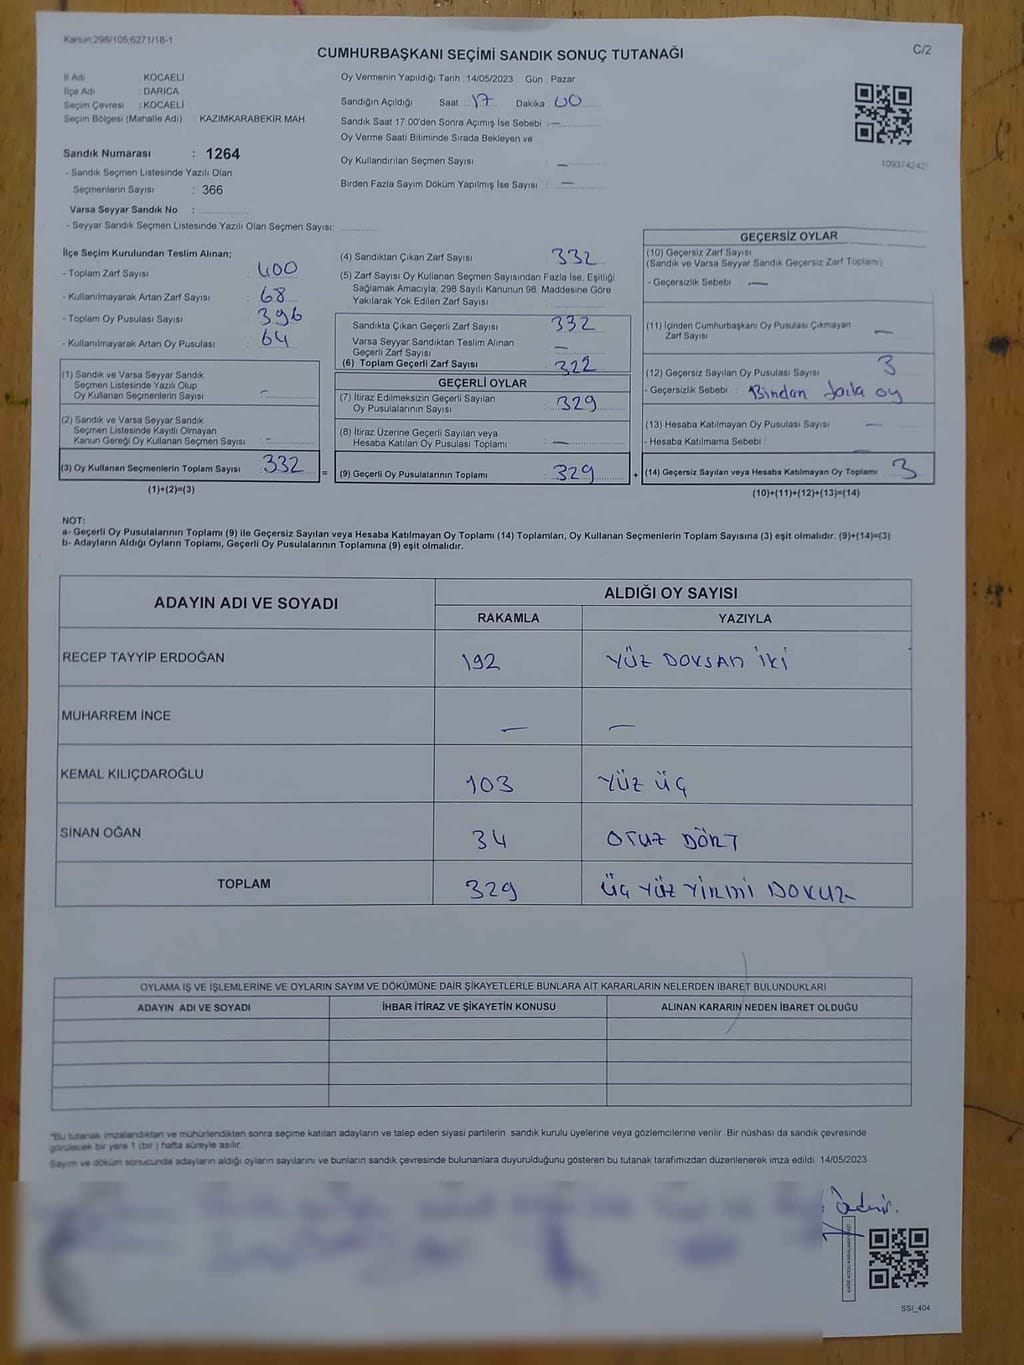 Kanun:298/105;6271/18-1
CUMHURBAŞKANI SEÇİMİ SANDIK SONUÇ TUTANAĞI
C/2
İl Adı : KOCAELİ
İlçe Adı : DARICA
Seçim Çevresi : KOCAELİ
Seçim Bölgesi (Mahalle Adı) : KAZIMKARABEKİR MAH.
Sandık Numarası : 1264
- Sandık Seçmen Listesinde Yazılı Olan
Seçmenlerin Sayısı : 366
Varsa Seyyar Sandık No :
- Seyyar Sandık Seçmen Listesinde Yazılı Olan Seçmen Sayısı:
Oy Vermenin Yapıldığı Tarih : 14/05/2023 Gün : Pazar
Sandığın Açıldığı Saat : 17 Dakika : 00
Sandık Saat 17:00'den Sonra Açımış İse Sebebi : —
Oy Verme Saati Bitiminde Sırada Bekleyen ve
Oy Kullandırılan Seçmen Sayısı : —
Birden Fazla Sayım Döküm Yapılmış İse Sayısı : —
1093742421
İlçe Seçim Kurulundan Teslim Alınan;
- Toplam Zarf Sayısı : 400
- Kullanılmayarak Artan Zarf Sayısı : 68
- Toplam Oy Pusulası Sayısı : 396
- Kullanılmayarak Artan Oy Pusulası : 64
(1) Sandık ve Varsa Seyyar Sandık
Seçmen Listesinde Yazılı Olup
Oy Kullanan Seçmenlerin Sayısı : -
(2) Sandık ve Varsa Seyyar Sandık
Seçmen Listesinde Kayıtlı Olmayan
Kanun Gereği Oy Kullanan Seçmen Sayısı : -
(3) Oy Kullanan Seçmenlerin Toplam Sayısı : 332
(1)+(2)=(3)
=
(4) Sandıktan Çıkan Zarf Sayısı : 332
(5) Zarf Sayısı Oy Kullanan Seçmen Sayısından Fazla İse, Eşitliği
Sağlamak Amacıyla; 298 Sayılı Kanunun 98. Maddesine Göre
Yakılarak Yok Edilen Zarf Sayısı :
Sandıkta Çıkan Geçerli Zarf Sayısı : 332
Varsa Seyyar Sandıktan Teslim Alınan
Geçerli Zarf Sayısı : —
(6) Toplam Geçerli Zarf Sayısı : 322
GEÇERLİ OYLAR
(7) İtiraz Edilmeksizin Geçerli Sayılan
Oy Pusulalarının Sayısı : 329
(8) İtiraz Üzerine Geçerli Sayılan veya
Hesaba Katılan Oy Pusulası Toplamı : —
(9) Geçerli Oy Pusulalarının Toplamı : 329
+
GEÇERSİZ OYLAR
(10) Geçersiz Zarf Sayısı
(Sandık ve Varsa Seyyar Sandık Geçersiz Zarf Toplamı)
- Geçersizlik Sebebi : —
(11) İçinden Cumhurbaşkanı Oy Pusulası Çıkmayan
Zarf Sayısı : —
(12) Geçersiz Sayılan Oy Pusulası Sayısı : 3
- Geçersizlik Sebebi : Birden fazla oy
(13) Hesaba Katılmayan Oy Pusulası Sayısı : —
- Hesaba Katılmama Sebebi :
(14) Geçersiz Sayılan veya Hesaba Katılmayan Oy Toplamı : 3
(10)+(11)+(12)+(13)=(14)
NOT:
a- Geçerli Oy Pusulalarının Toplamı (9) ile Geçersiz Sayılan veya Hesaba Katılmayan Oy Toplamı (14) Toplamları, Oy Kullanan Seçmenlerin Toplam Sayısına (3) eşit olmalıdır. (9)+(14)=(3)
b- Adayların Aldığı Oyların Toplamı, Geçerli Oy Pusulalarının Toplamına (9) eşit olmalıdır.
ADAYIN ADI VE SOYADI
ALDIĞI OY SAYISI
RAKAMLA YAZIYLA
RECEP TAYYİP ERDOĞAN 192 YÜZ DOKSAN İKİ
MUHARREM İNCE — —
KEMAL KILIÇDAROĞLU 103 YÜZ ÜÇ
SİNAN OĞAN 34 OTUZ DÖRT
TOPLAM 329 ÜÇ YÜZ YİRMİ DOKUZ
OYLAMA İŞ VE İŞLEMLERİNE VE OYLARIN SAYIM VE DÖKÜMÜNE DAİR ŞİKAYETLERLE BUNLARA AİT KARARLARIN NELERDEN İBARET BULUNDUKLARI
ADAYIN ADI VE SOYADI İHBAR İTİRAZ VE ŞİKAYETİN KONUSU ALINAN KARARIN NEDEN İBARET OLDUĞU
*Bu tutanak imzalandıktan ve mühürlendikten sonra seçime katılan adayların ve talep eden siyasi partilerin sandık kurulu üyelerine veya gözlemcilerine verilir. Bir nüshası da sandık çevresinde
görülecek bir yere 1 (bir ) hafta süreyle asılır.
Sayım ve döküm sonucunda adayların aldığı oyların sayılarını ve bunların sandık çevresinde bulunanlara duyurulduğunu gösteren bu tutanak tarafımızdan düzenlenerek imza edildi. 14/05/2023
SSI_404